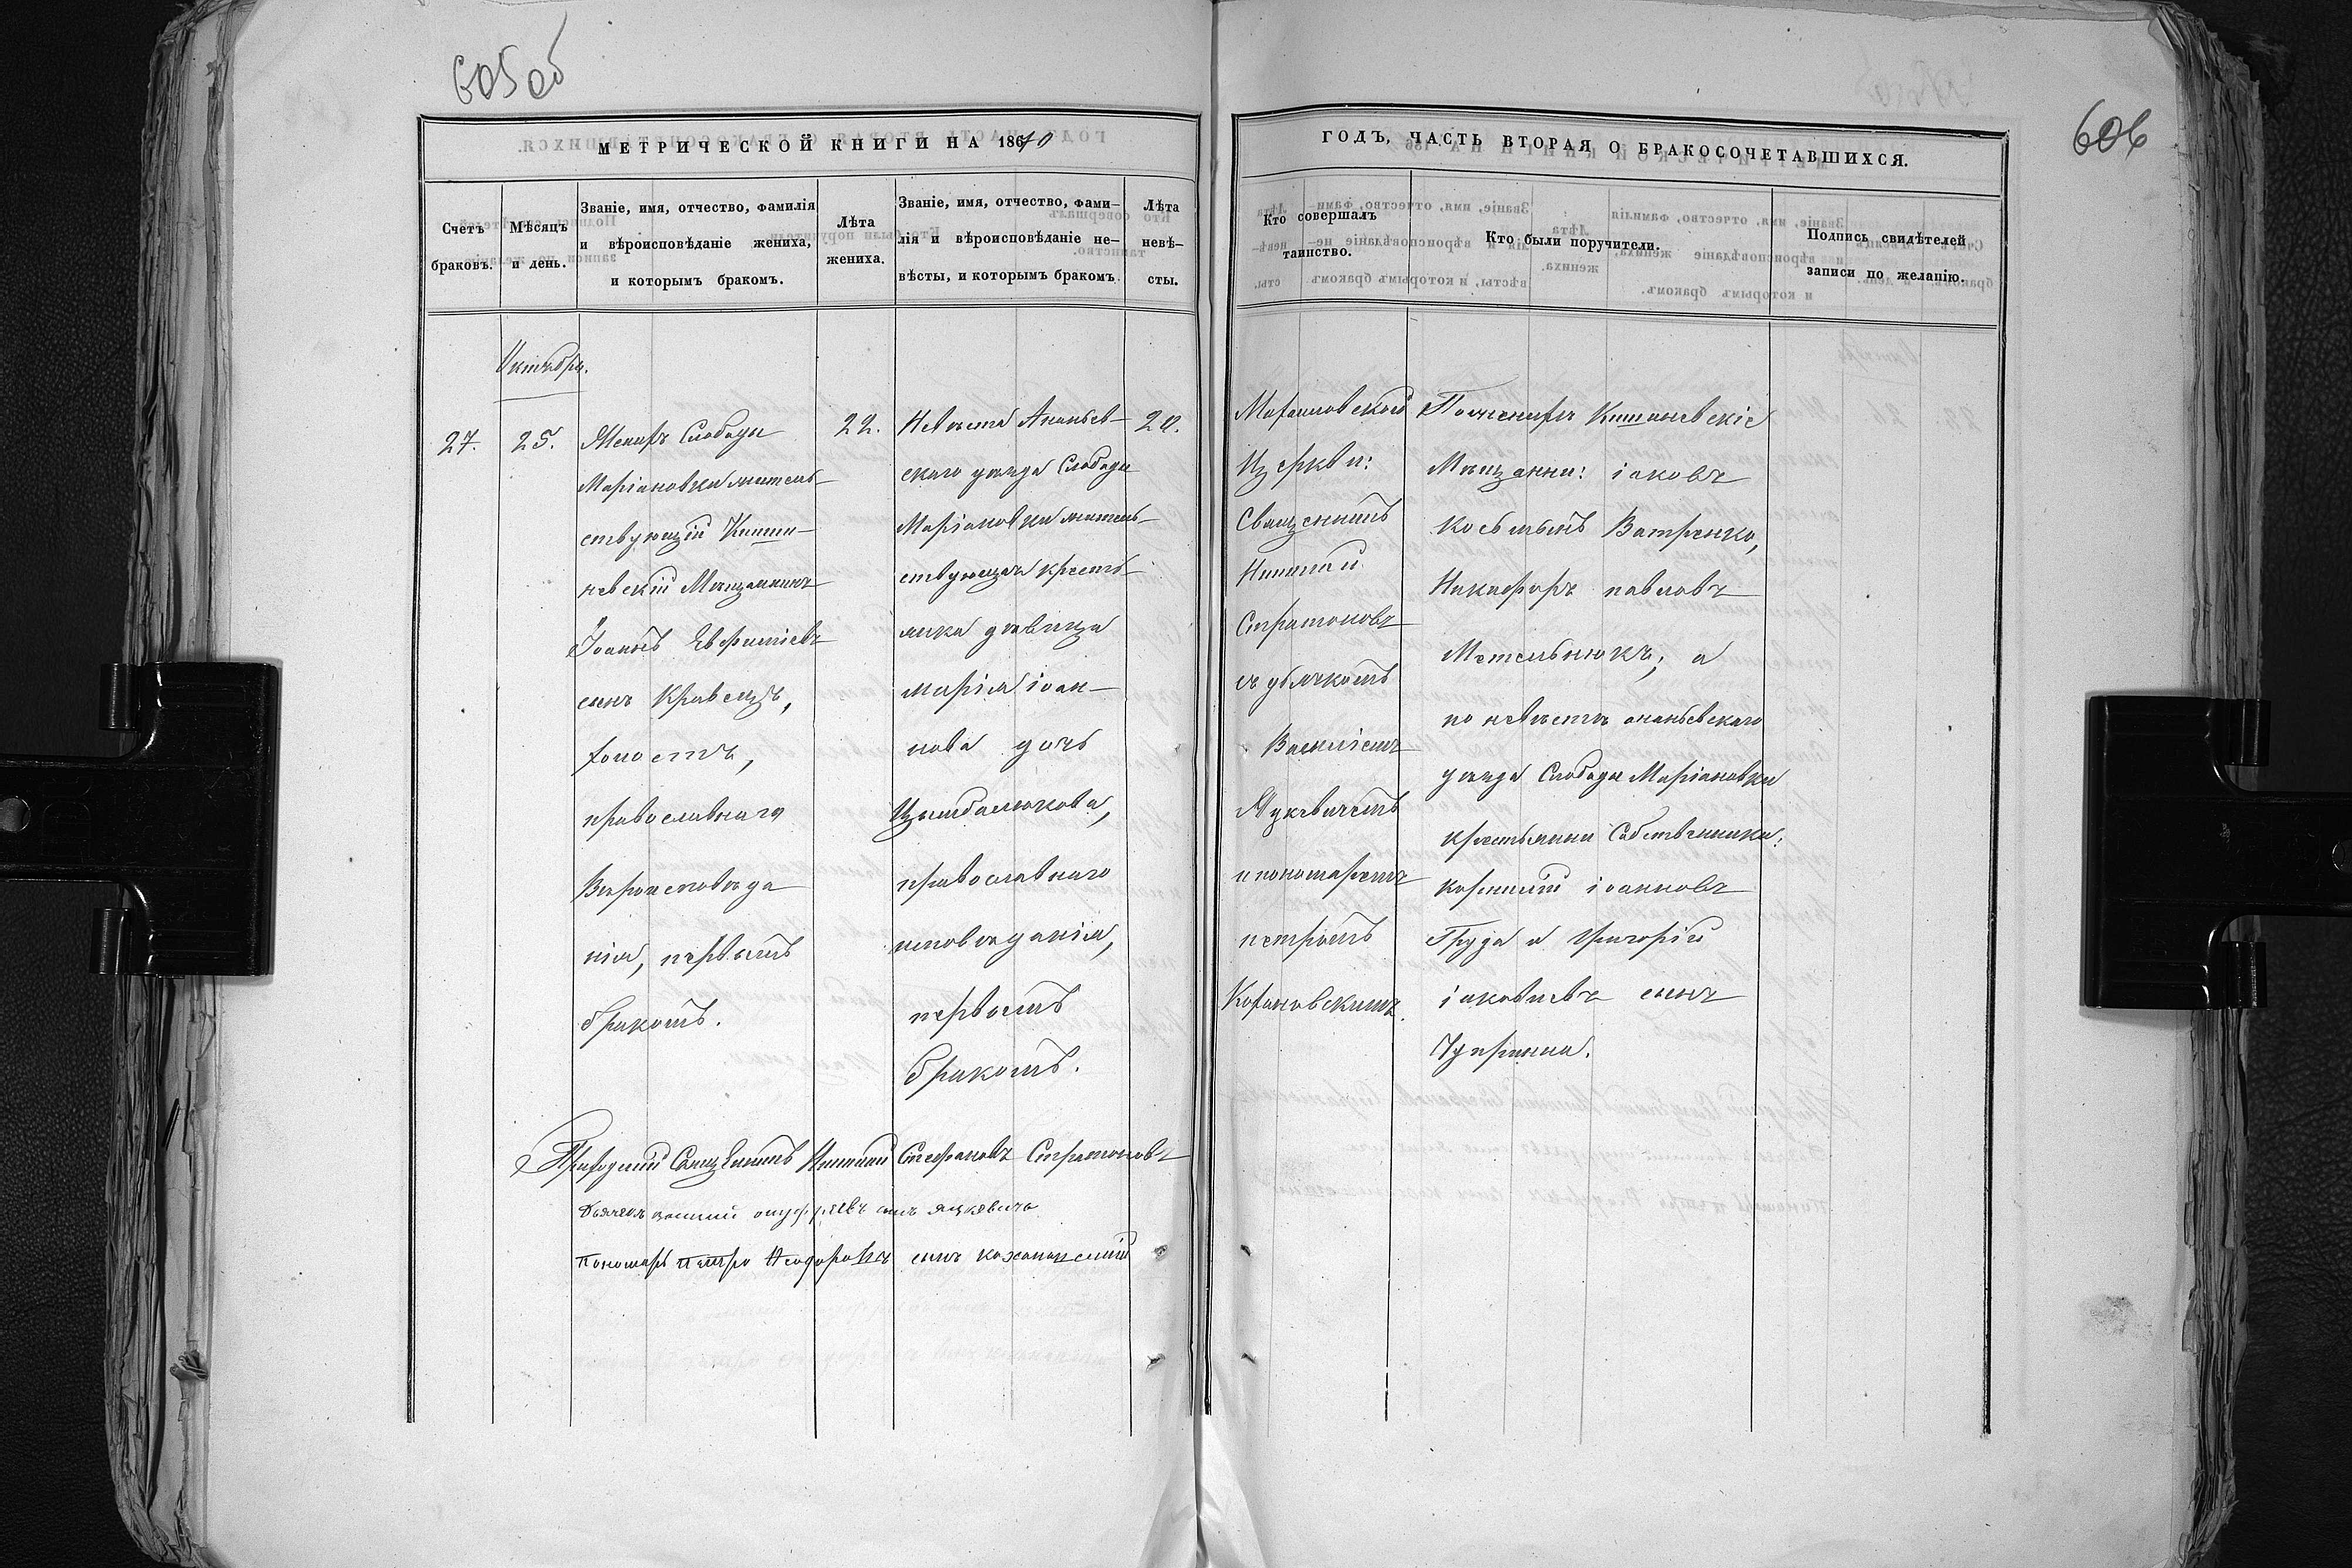 605 об
606
МЕТРИЧЕСКОЙ КНИГИ НА 1870
ГОДЪ, ЧАСТЬ ВТОРАЯ О БРАКОСОЧЕТАВШИХСЯ.
Счетъ браковъ.
Мѣсяцъ и день.
Званіе, имя, отчество, фамилія
и вѣроисповѣданіе жениха,
и которымъ бракомъ.
Лѣта жениха.
Званіе, имя, отчество, фами-
лія и вѣроисповѣданіе не-
вѣсты, и которымъ бракомъ.
Лѣта невѣ-
сты.
Кто совершалъ
таинство.
Кто были поручители.
Подпись свидѣтелей
записи по желанію.
Октября.
27.
25.
Женихъ Слободы
Маріановки житель-
ствующій Киши-
невскій Мѣщанинъ
Іоаннъ Евфиміевъ
сынъ Кравецъ,
холостъ,
православнаго
Вѣроисповѣда
нія, первымъ
бракомъ.
22.
Невѣста Ананьев-
скаго уѣзда Слободы
Маріановки житель-
ствующая кресть-
янка дѣвица
Марія іоан-
нова дочь
Цымбалюкова,
православнаго
исповѣданія,
первымъ
бракомъ.
20.
Церкви:
Священникъ
Стратоновъ
съ дьячкомъ
Василіемъ
Яцкевичемъ
и пономаремъ
петромъ
Кохановскимъ.
По жениху Кишиневскіе
Мѣщанны: іаковъ
Никифоръ павловъ
Метельнюкъ; а
по невѣстѣ ананьевскаго
уѣзда Слободы Маріановки
крестьянны Собственники:
іоанновъ
Груда и Григорій
іаковлевъ сынъ
Чупрына.
Приходскій Священникъ Стефановъ Стратоновъ
Дьячекъ василій онуфріевъ сынъ яцкевичъ
Пономарь петръ Ѳеодоровъ сынъ кохановскій